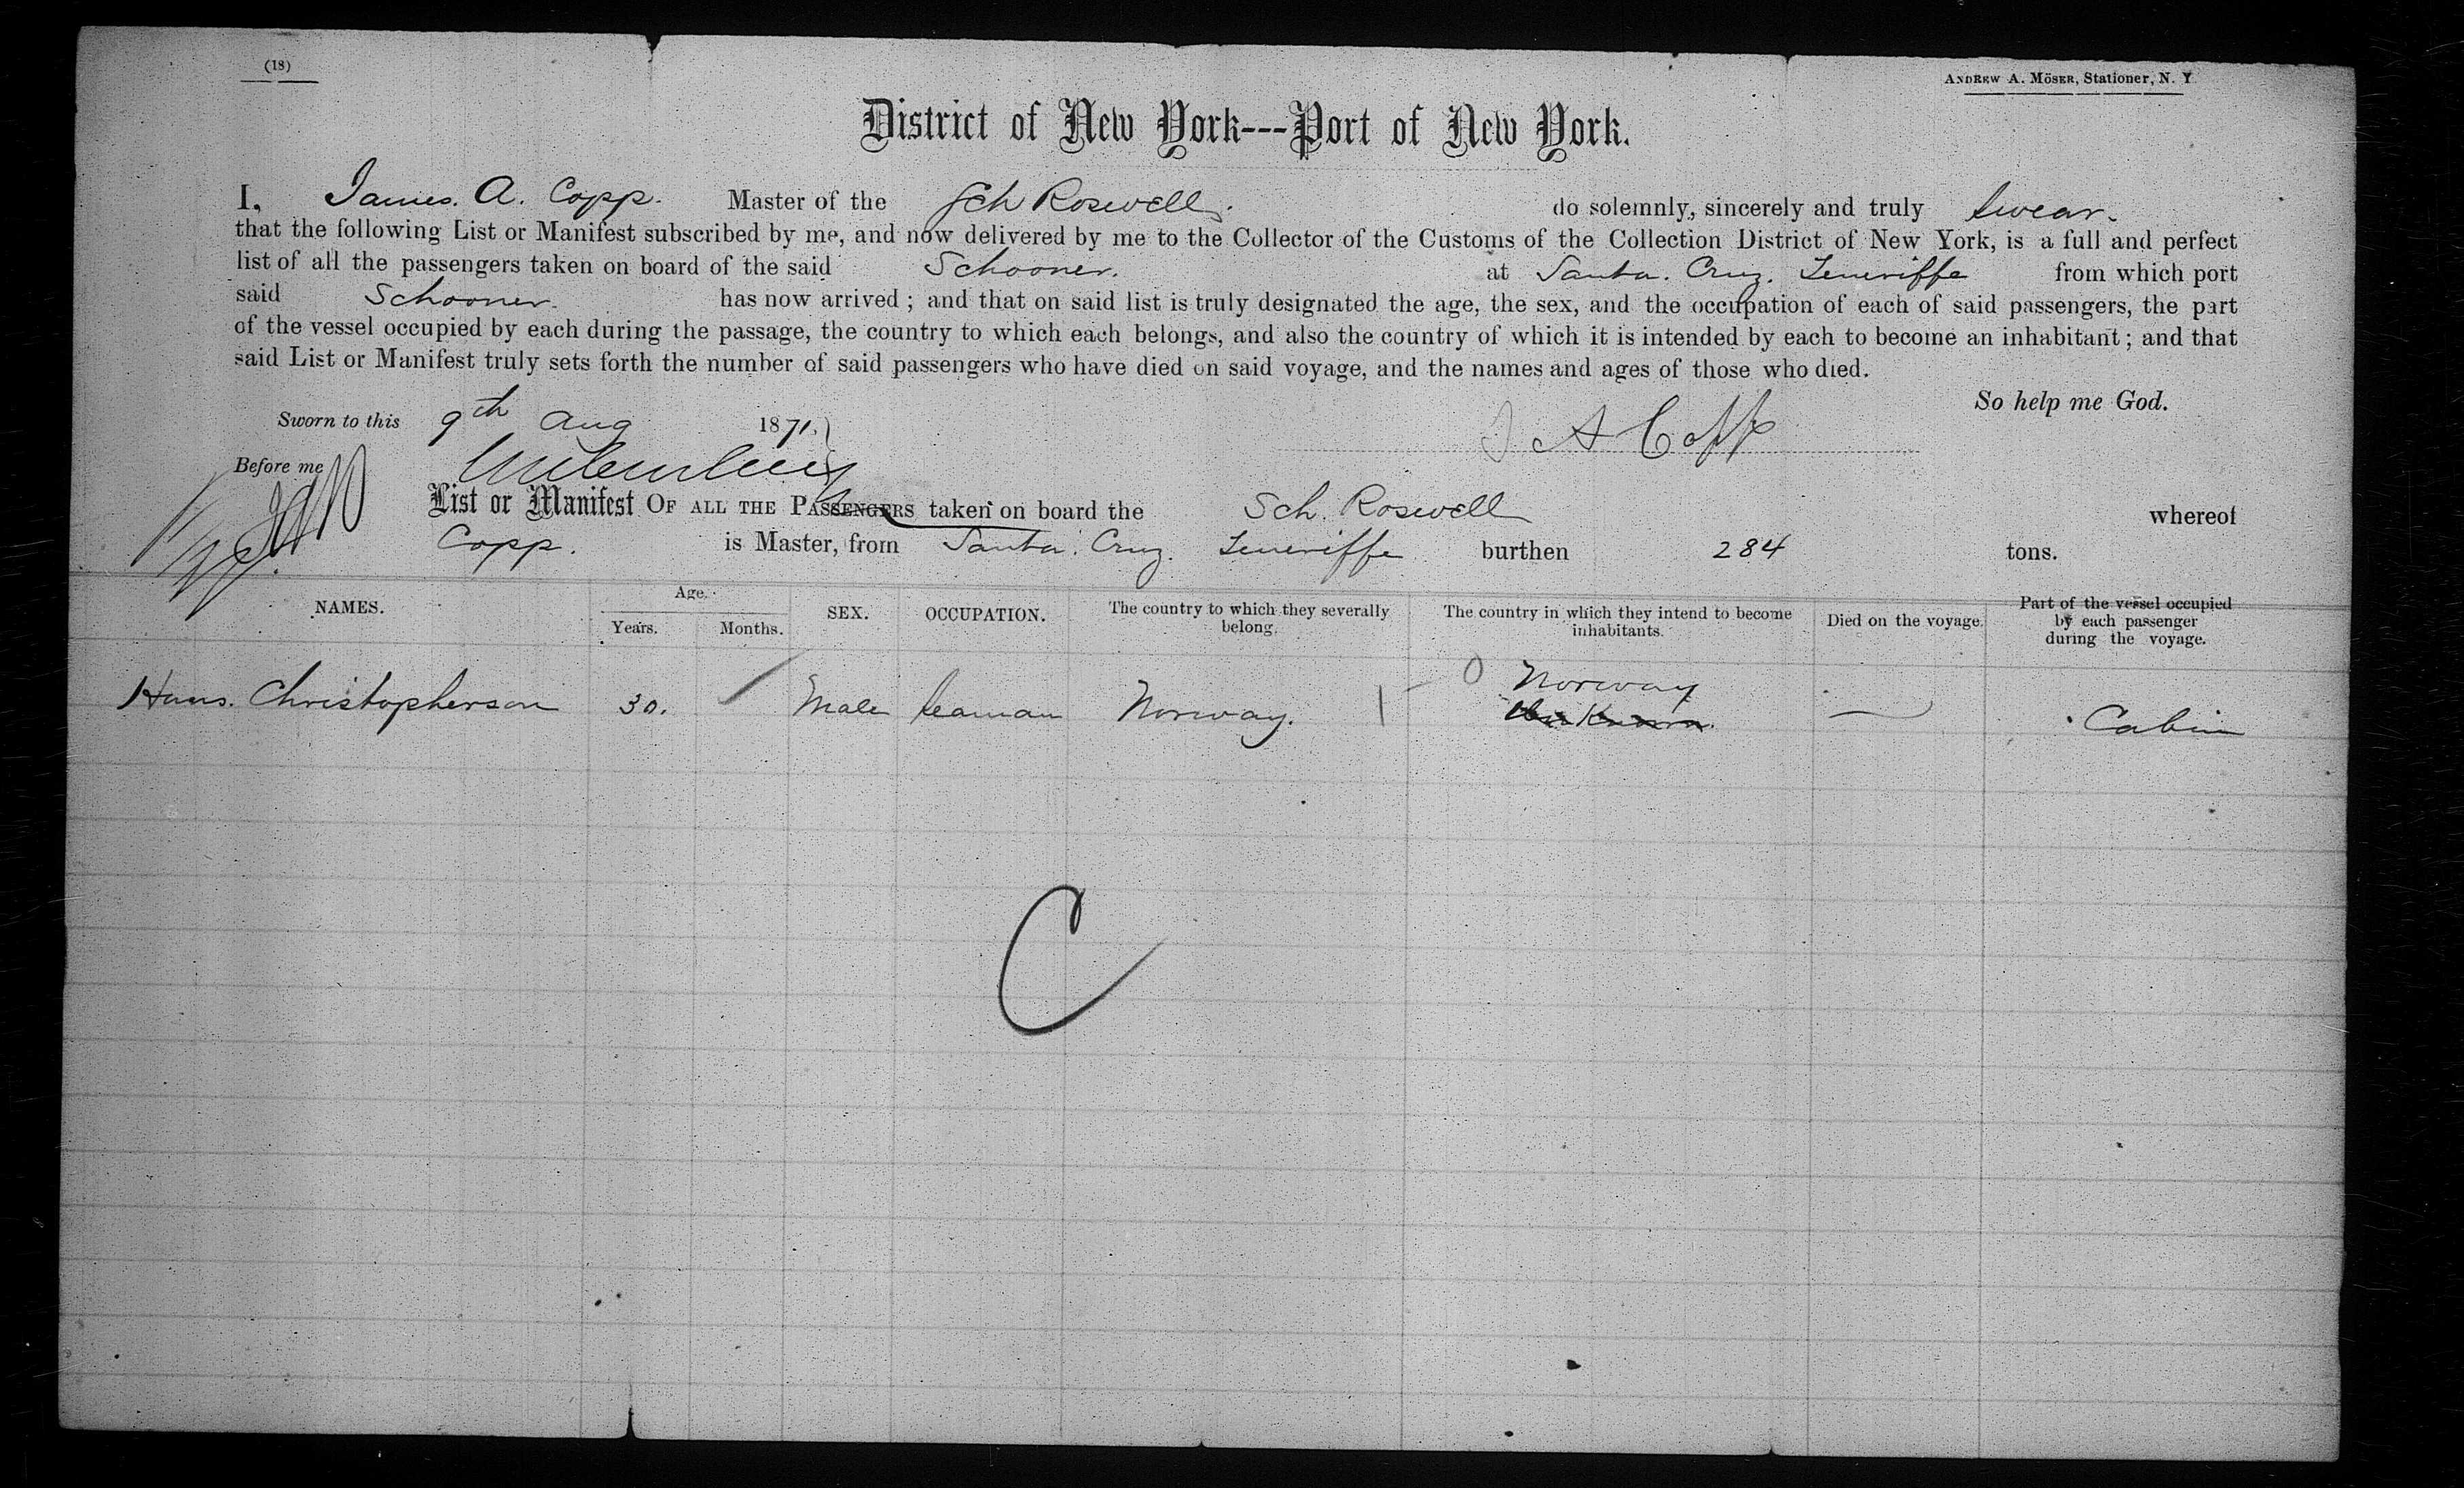 (18)
ANDREW A. MÖSER, Stationer, N. Y
District of New York---Port of New York.
I, James. A. Copp. Master of the Sch Roswell. do solemnly, sincerely and truly swear.
that the following List or Manifest subscribed by me, and now delivered by me to the Collector of the Customs of the Collection District of New York, is a full and perfect
list of all the passengers taken on board of the said Schooner. at Santa. Cruz. Teneriffe from which port
said Schooner. has now arrived ; and that on said list is truly designated the age, the sex, and the occupation of each of said passengers, the part
of the vessel occupied by each during the passage, the country to which each belongs, and also the country of which it is intended by each to become an inhabitant ; and that
said List or Manifest truly sets forth the number of said passengers who have died on said voyage, and the names and ages of those who died.
So help me God.
Sworn to this 9th Aug 1871.
J A Copp
Before me
List or Manifest OF ALL THE PASSENGERS taken on board the Sch. Roswell whereof
Copp. is Master, from Santa. Cruz. Teneriffe burthen 284 tons.
NAMES. Age. Years. Months. SEX. OCCUPATION. The country to which they severally belong. The country in which they intend to become inhabitants. Died on the voyage. Part of the vessel occupied by each passenger during the voyage.
Hans. Christopherson 30. Male Seaman Norway. 1 0 Norway Cabin
Unknown.
C